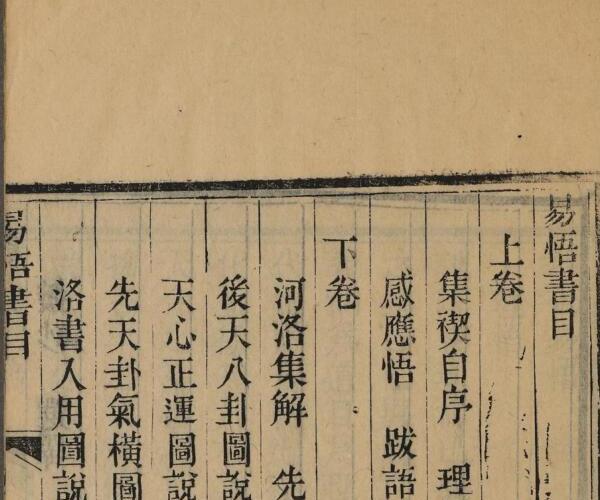 易悟書目
上卷
集禊自序　理
感應悟　跋語
下卷
河洛集解　先
後天八卦圖說
天心正運圖說
先天卦氣橫圖
洛書入用圖說
易悟書目